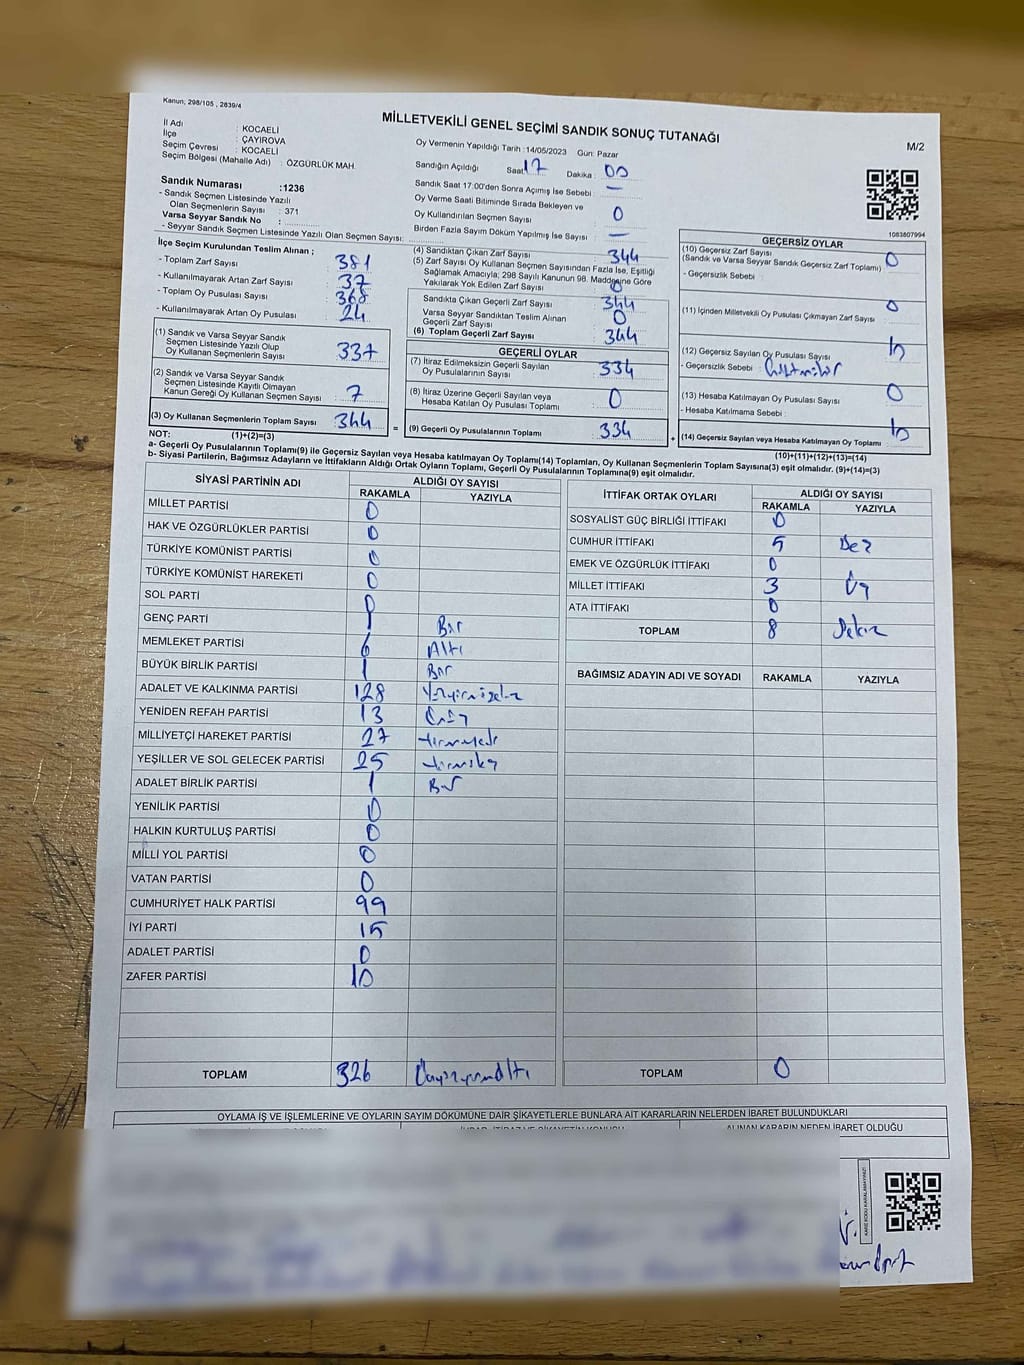 Kanun; 298/105 , 2839/4
MİLLETVEKİLİ GENEL SEÇİMİ SANDIK SONUÇ TUTANAĞI
M/2
İl Adı : KOCAELİ
İlçe : ÇAYIROVA
Seçim Çevresi : KOCAELİ
Seçim Bölgesi (Mahalle Adı) : ÖZGÜRLÜK MAH.
Sandık Numarası :1236
- Sandık Seçmen Listesinde Yazılı
Olan Seçmenlerin Sayısı : 371
Varsa Seyyar Sandık No :
- Seyyar Sandık Seçmen Listesinde Yazılı Olan Seçmen Sayısı:
Oy Vermenin Yapıldığı Tarih :14/05/2023 Gün: Pazar
Sandığın Açıldığı Saat 17 Dakika : 00
Sandık Saat 17:00'den Sonra Açılmış İse Sebebi : —
Oy Verme Saati Bitiminde Sırada Bekleyen ve
Oy Kullandırılan Seçmen Sayısı : 0
Birden Fazla Sayım Döküm Yapılmış İse Sayısı : —
1083807994
İlçe Seçim Kurulundan Teslim Alınan ;
- Toplam Zarf Sayısı : 381
- Kullanılmayarak Artan Zarf Sayısı : 37
- Toplam Oy Pusulası Sayısı : 368
- Kullanılmayarak Artan Oy Pusulası : 24
(1) Sandık ve Varsa Seyyar Sandık
Seçmen Listesinde Yazılı Olup
Oy Kullanan Seçmenlerin Sayısı : 337
(2) Sandık ve Varsa Seyyar Sandık
Seçmen Listesinde Kayıtlı Olmayan
Kanun Gereği Oy Kullanan Seçmen Sayısı : 7
(3) Oy Kullanan Seçmenlerin Toplam Sayısı : 344
(4) Sandıktan Çıkan Zarf Sayısı : 344
(5) Zarf Sayısı Oy Kullanan Seçmen Sayısından Fazla İse, Eşitliği
Sağlamak Amacıyla; 298 Sayılı Kanunun 98. Maddesine Göre
Yakılarak Yok Edilen Zarf Sayısı : 0
Sandıkta Çıkan Geçerli Zarf Sayısı : 344
Varsa Seyyar Sandıktan Teslim Alınan
Geçerli Zarf Sayısı : 0
(6) Toplam Geçerli Zarf Sayısı : 344
GEÇERLİ OYLAR
(7) İtiraz Edilmeksizin Geçerli Sayılan
Oy Pusulalarının Sayısı : 334
(8) İtiraz Üzerine Geçerli Sayılan veya
Hesaba Katılan Oy Pusulası Toplamı : 0
= (9) Geçerli Oy Pusulalarının Toplamı : 334
GEÇERSİZ OYLAR
(10) Geçersiz Zarf Sayısı
(Sandık ve Varsa Seyyar Sandık Geçersiz Zarf Toplamı) : 0
- Geçersizlik Sebebi :
(11) İçinden Milletvekili Oy Pusulası Çıkmayan Zarf Sayısı : 0
(12) Geçersiz Sayılan Oy Pusulası Sayısı : 10
- Geçersizlik Sebebi :
(13) Hesaba Katılmayan Oy Pusulası Sayısı : 0
- Hesaba Katılmama Sebebi :
+ (14) Geçersiz Sayılan veya Hesaba Katılmayan Oy Toplamı : 10
NOT: (1)+(2)=(3)
(10)+(11)+(12)+(13)=(14)
a- Geçerli Oy Pusulalarının Toplamı(9) ile Geçersiz Sayılan veya Hesaba katılmayan Oy Toplamı(14) Toplamları, Oy Kullanan Seçmenlerin Toplam Sayısına(3) eşit olmalıdır. (9)+(14)=(3)
b- Siyasi Partilerin, Bağımsız Adayların ve İttifakların Aldığı Ortak Oyların Toplamı, Geçerli Oy Pusulalarının Toplamına(9) eşit olmalıdır.
SİYASİ PARTİNİN ADI ALDIĞI OY SAYISI
RAKAMLA YAZIYLA
MİLLET PARTİSİ 0
HAK VE ÖZGÜRLÜKLER PARTİSİ 0
TÜRKİYE KOMÜNİST PARTİSİ 0
TÜRKİYE KOMÜNİST HAREKETİ 0
SOL PARTİ 0
GENÇ PARTİ 1 Bir
MEMLEKET PARTİSİ 6 Altı
BÜYÜK BİRLİK PARTİSİ 1 Bir
ADALET VE KALKINMA PARTİSİ 128
YENİDEN REFAH PARTİSİ 13
MİLLİYETÇİ HAREKET PARTİSİ 27
YEŞİLLER VE SOL GELECEK PARTİSİ 25
ADALET BİRLİK PARTİSİ 1 Bir
YENİLİK PARTİSİ 0
HALKIN KURTULUŞ PARTİSİ 0
MİLLİ YOL PARTİSİ 0
VATAN PARTİSİ 0
CUMHURİYET HALK PARTİSİ 99
İYİ PARTİ 15
ADALET PARTİSİ 0
ZAFER PARTİSİ 10
TOPLAM 326
İTTİFAK ORTAK OYLARI ALDIĞI OY SAYISI
RAKAMLA YAZIYLA
SOSYALİST GÜÇ BİRLİĞİ İTTİFAKI 0
CUMHUR İTTİFAKI 5 Beş
EMEK VE ÖZGÜRLÜK İTTİFAKI 0
MİLLET İTTİFAKI 3 Üç
ATA İTTİFAKI 0
TOPLAM 8 Sekiz
BAĞIMSIZ ADAYIN ADI VE SOYADI RAKAMLA YAZIYLA
TOPLAM 0
OYLAMA İŞ VE İŞLEMLERİNE VE OYLARIN SAYIM DÖKÜMÜNE DAİR ŞİKAYETLERLE BUNLARA AİT KARARLARIN NELERDEN İBARET BULUNDUKLARI
ALINAN KARARIN NEDEN İBARET OLDUĞU
KARE KODU KARALAMAYINIZ!